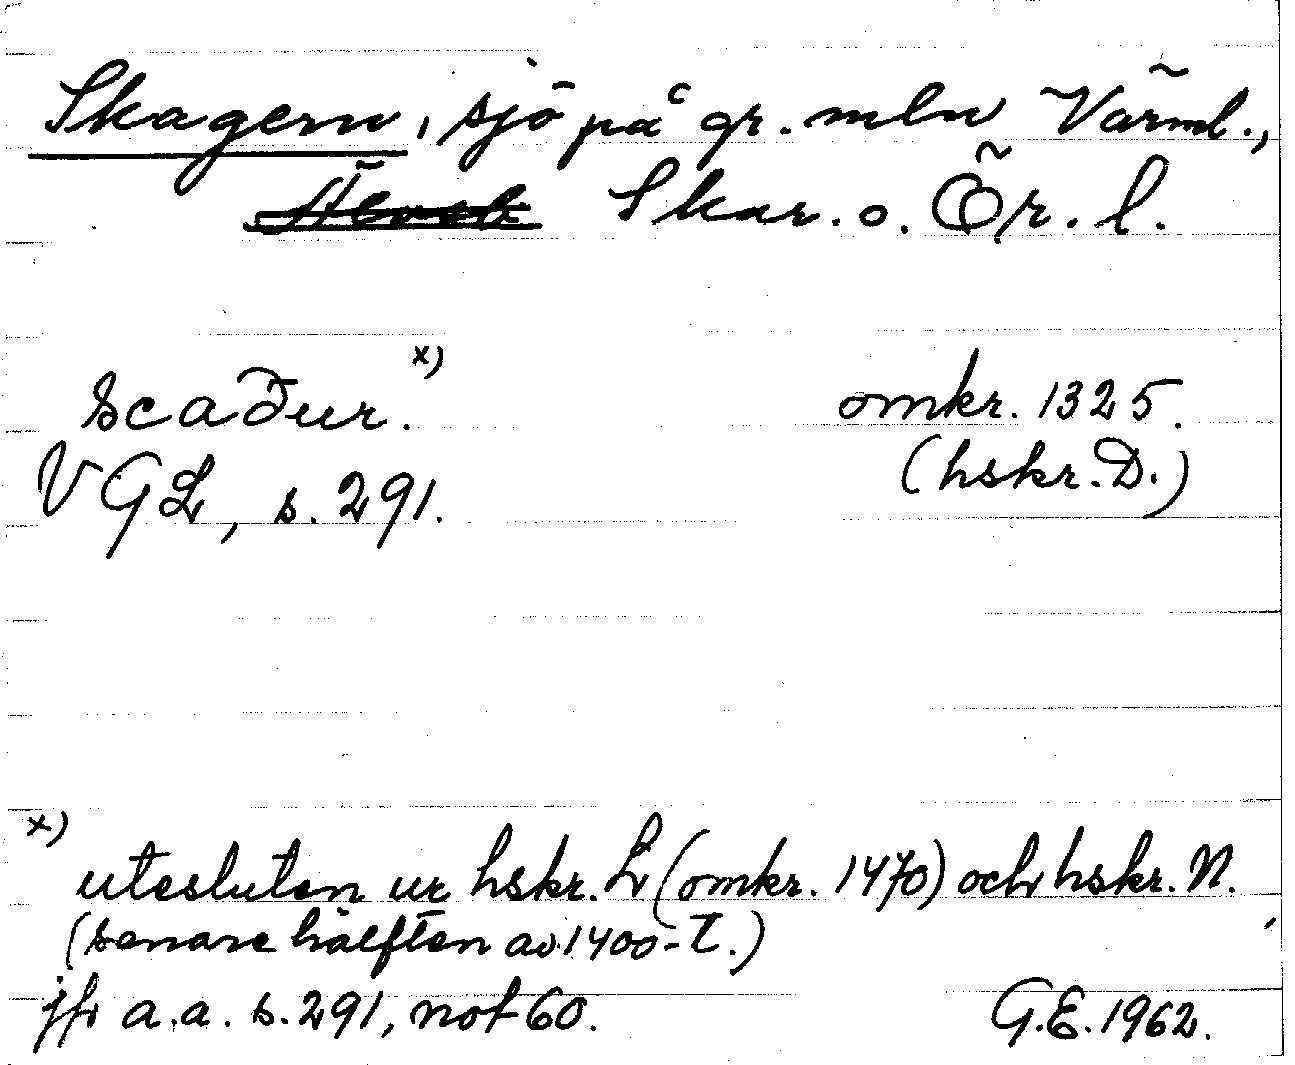 Skagern, sjö på gr. mln Värml.,
Skar. o. Ör. l.
scaður. x)
omkr. 1325.
VGL, s. 291.
(hskr. D.)
x)
utesluten ur hskr. L (omkr. 1470) och hskr. N.
(senare hälften av 1400-t.)
jfr a.a. s. 291, not 60.
G.E. 1962.